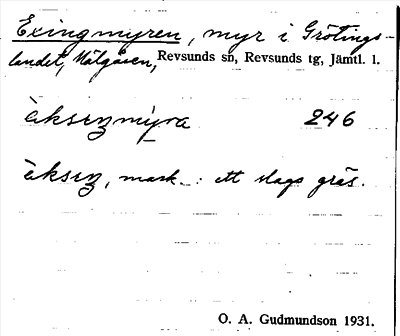 Exingmyren, myr i Grötings-
landet, Mälgåsen, Revsunds sn, Revsunds tg, Jämtl. l.
àkseŋmỳra 246
àkseŋ, mask. : ett slags gräs.
O. A. Gudmundson 1931.